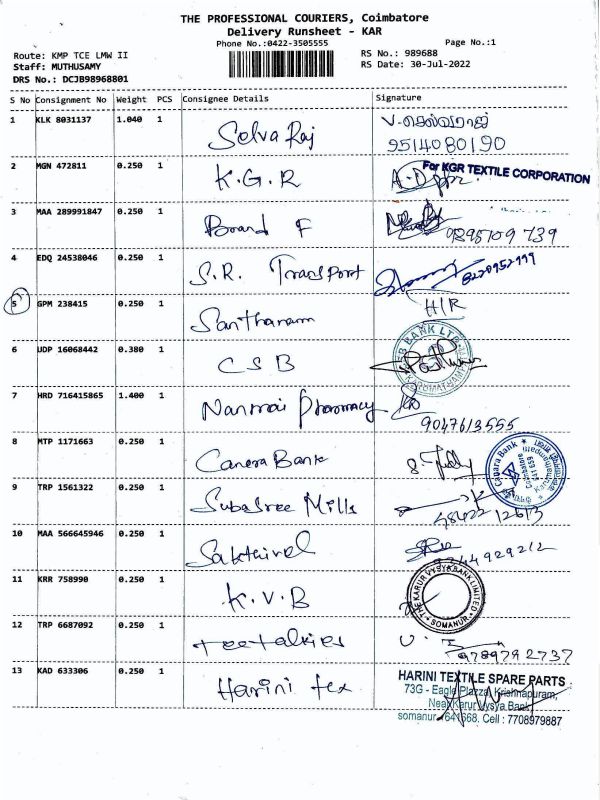 THE PROFESSIONAL COURIERS, Coimbatore
Delivery Runsheet - KAR
Phone No.:0422-3505555
Page No.:1
Route: KMP TCE LMW II
RS No.: 989688
Staff: MUTHUSAMY
RS Date: 30-Jul-2022
DRS No.: DCJB98968801
S No Consignment No Weight PCS Consignee Details Signature
1 KLK 8031137 1.040 1 Selva Raj V.செல்வராஜ்
9514080190
2 MGN 472811 0.250 1 K.G.R For KGR TEXTILE CORPORATION
3 MAA 289991847 0.250 1 Board F
9895709739
4 EDQ 24538046 0.250 1 S.R. Transport 8220952999
5 GPM 238415 0.250 1 Santharam H/R
6 UDP 16068442 0.380 1 CSB
7 HRD 716415865 1.400 1 Nanmai Pharmacy
9047613555
8 MTP 1171663 0.250 1 Canera Bank Canara Bank
9 TRP 1561322 0.250 1 Subasree Mills
10 MAA 566645946 0.250 1 Sakthivel
11 KRR 758990 0.250 1 K.V.B THE KARUR VYSYA BANK LIMITED
SOMANUR
12 TRP 6687092 0.250 1
9789792737
13 KAD 633306 0.250 1 Harini tex HARINI TEXTILE SPARE PARTS
73G - Eagle Plazza, Krishnapuram,
Near Karur Vysya Bank
somanur - 641668. Cell : 7708979887